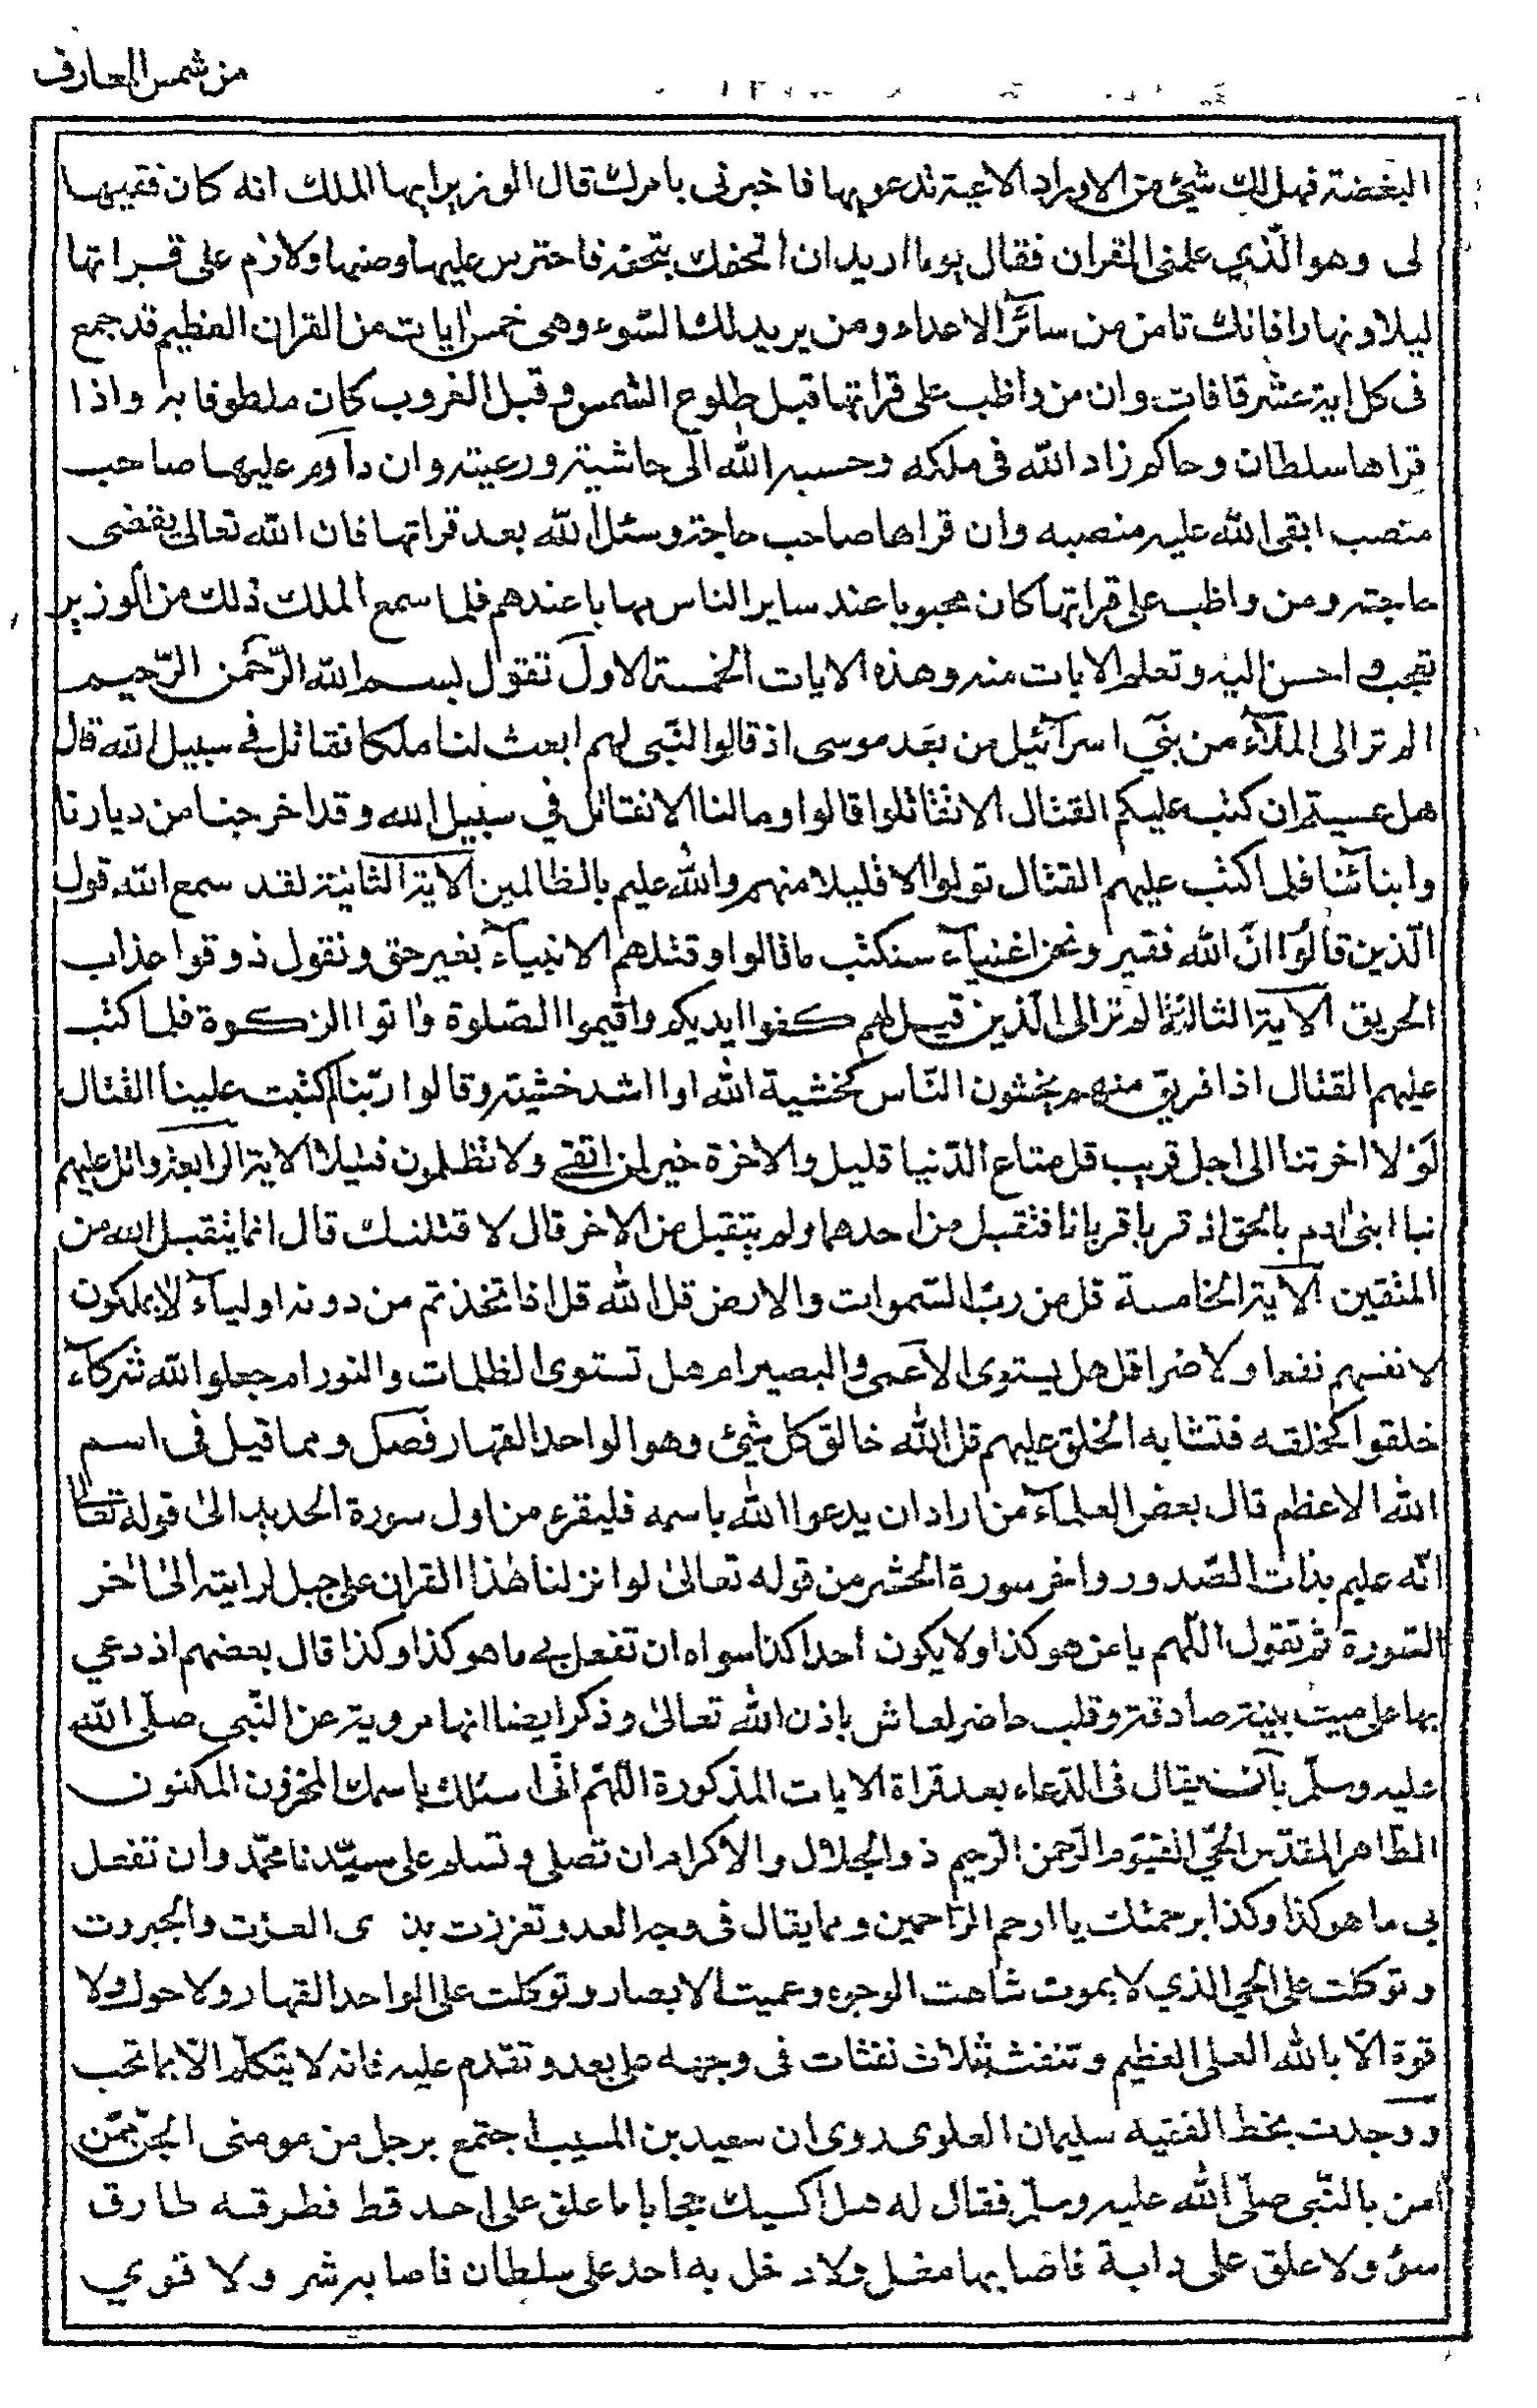 من شمس المعارف
البغضة فهل لك شيئ من الاوراد الادعية تدعو بها فاخبرني بامرك قال الوزير ايها الملك انه كان فقيها
لى وهو الذي علمنى القران فقال يوما اريد ان اتحفك بتحفة فاحترس عليها وصنها ولازم على قراتها
ليلا ونهارا فانك تامن من سائر الاعداء ومن يريد لك السوء وهى خمس ايات من القران العظيم قد جمع
فى كل اية عشر قافات وان من واظب على قراتها قبل طلوع الشمس وقبل الغروب كان ملطوفا به واذا
قراها سلطان وحاكم زاد الله فى ملكه وحسبه الله الى حاشيته ورعيته وان داوم عليها صاحب
منصب ابقى الله عليه منصبه وان قراها صاحب حاجة وسئل الله بعد قراتها فان الله تعالى يقضى
حاجته ومن واظب على قراتها كان محبوبا عند ساير الناس مهابا عندهم فلما سمع الملك ذلك من الوزير
تعجب واحسن اليه وتعلم الايات منه وهذه الايات الخمسة الاول تقول بسم الله الرّحمن الرّحيم
الم تر الى الملاء من بنى اسرائيل من بعد موسى اذ قالوا لنبى لهم ابعث لنا ملكا نقاتل فى سبيل الله قال
هل عسيتم ان كتب عليكم القتال الا تقاتلوا قالوا وما لنا الا نقاتل في سبيل الله وقد اخرجنا من ديارنا
وابنائنا فلما كتب عليهم القتال تولوا الا قليلا منهم والله عليم بالظالمين الاية الثانية لقد سمع الله قول
الّذين قالوا انّ الله فقير ونحن اغنياء سنكتب ما قالوا وقتلهم الانبياء بغير حق ونقول ذوقوا عذاب
الحريق الاية الثالثة الم تر الى الّذين قيل لهم كفوا ايديكم واقيموا الصّلوة واتوا الزكوة فلما كتب
عليهم القتال اذا فريق منهم يخشون النّاس كخشية الله او اشد خشية وقالوا ربّنا لم كتبت علينا القتال
لولا اخرتنا الى اجل قريب قل متاع الدّنيا قليل والاخرة خير لمن اتقى ولا تظلمون فتيلا الاية الرابعة واتل عليهم
نبا ابنى ادم بالحق اذ قربا قربانا فتقبل من احدهما ولم يتقبل من الاخر قال لاقتلنك قال انما يتقبل الله من
المتقين الاية الخامسة قل من ربّ السّموات والارض قل الله قل افاتخذتم من دونه اولياء لا يملكون
لانفسهم نفعا ولا ضرا قل هل يستوى الاعمى والبصير ام هل تستوى الظلمات والنور ام جعلوا لله شركاء
خلقوا كخلقه فتشابه الخلق عليهم قل الله خالق كل شيئ وهو الواحد القهار فصل ومما قيل فى اسم
الله الاعظم قال بعض العلماء من اراد ان يدعوا الله باسمه فليقرء من اول سورة الحديد الى قوله تعالى
انّه عليم بذات الصّدور واخر سورة الحشر من قوله تعالى لو انزلنا هذا القران على جبل لرايته الى اخر
السّورة ثم تقول اللّهم يا من هو كذا ولا يكون احدا كذا سواه ان تفعل بي ما هو كذا وكذا قال بعضهم اذ دعي
بها على ميت بنية صادقة وقلب حاضر لعاش باذن الله تعالى وذكر ايضا انها مروية عن النّبى صلّى الله
عليه وسلّم يقال فى الدّعاء بعد قراة الايات المذكورة اللّهم انّى اسئلك باسمك المخزون المكنون
الطّاهر المقدّس الحّي القيّوم الرّحمن الرّحيم ذو الجلال والاكرام ان تصلى وتسلم على سيّدنا محمّد وان تفعل
بى ما هو كذا وكذا برحمتك يا ارحم الرّاحمين ومما يقال فى وجه العدو تعززت بذى العزت والجبروت
وتوكلت على الحي الذي لا يموت شاهت الوجوه وعميت الابصار وتوكلت على الواحد القهار ولا حول ولا
قوة الّا بالله العلى العظيم وتنفث ثلاث نفثات فى وجهه على بعد وتقدم عليه فانه لا يتكلّم الّا بما تحب
ووجدت بخط الفقيه سليمان العلوى روى ان سعيد بن المسيب اجتمع برجل من مومنى الجن ممّن
امن بالنّبى صلّى الله عليه وسلّم فقال له هل اكسيك حجابا ما علق على احد قط فطرقه طارق
سوء ولا علق على دابة فاضا بها مغل ولا دخل به احد على سلطان فاصابه شر ولا قوي